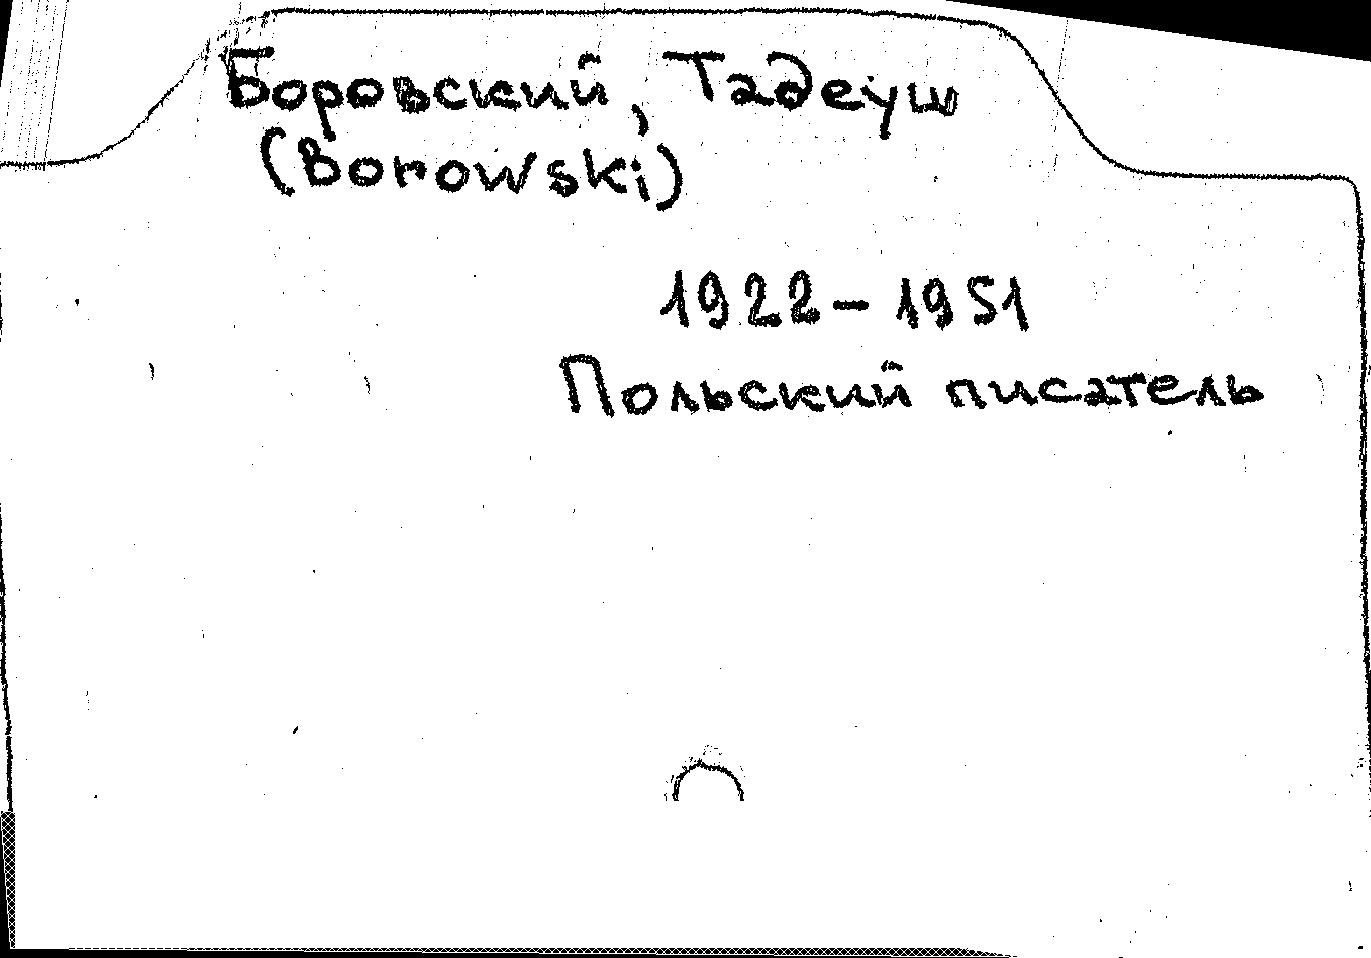 Боровский, Тадеуш
(Borowski)
1922-1951
Польский писатель